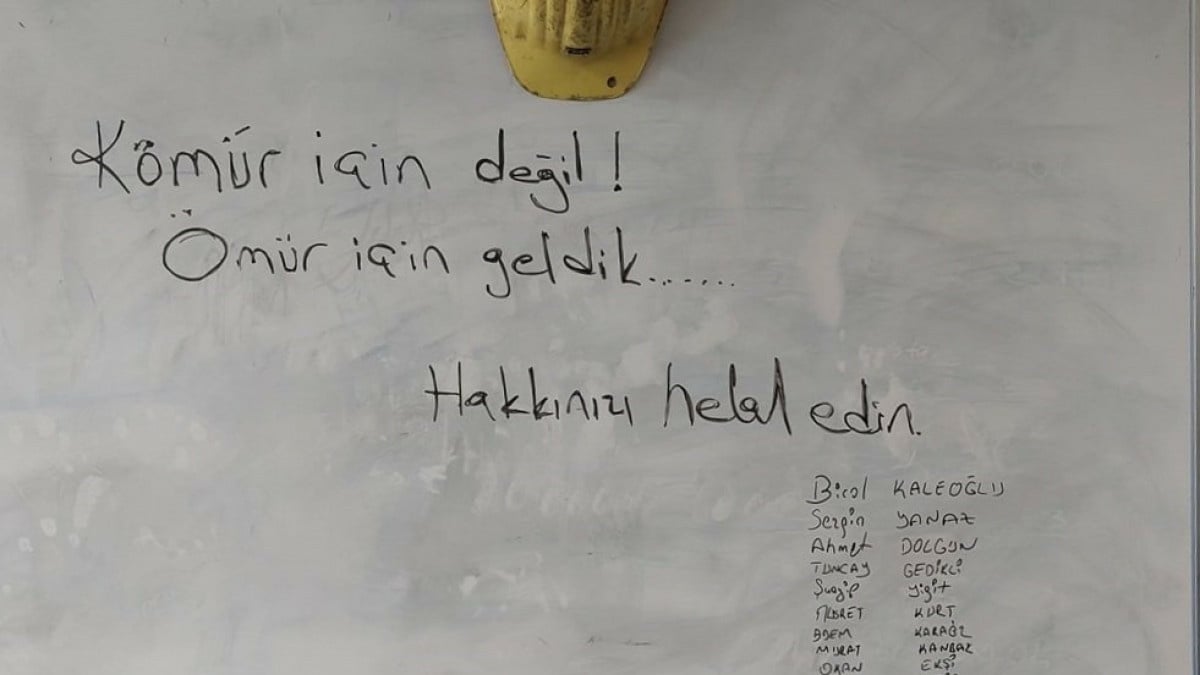 Kömür için değil!
Ömür için geldik.......
Hakkınızı helal edin.
Birol KALEOĞLU
Sezgin YANAZ
Ahmet DOLGUN
TUNCAY GEDİKLİ
Şuayip Yiğit
KURT
ADEM
MURAT KANBAZ
OKAN EKŞİ